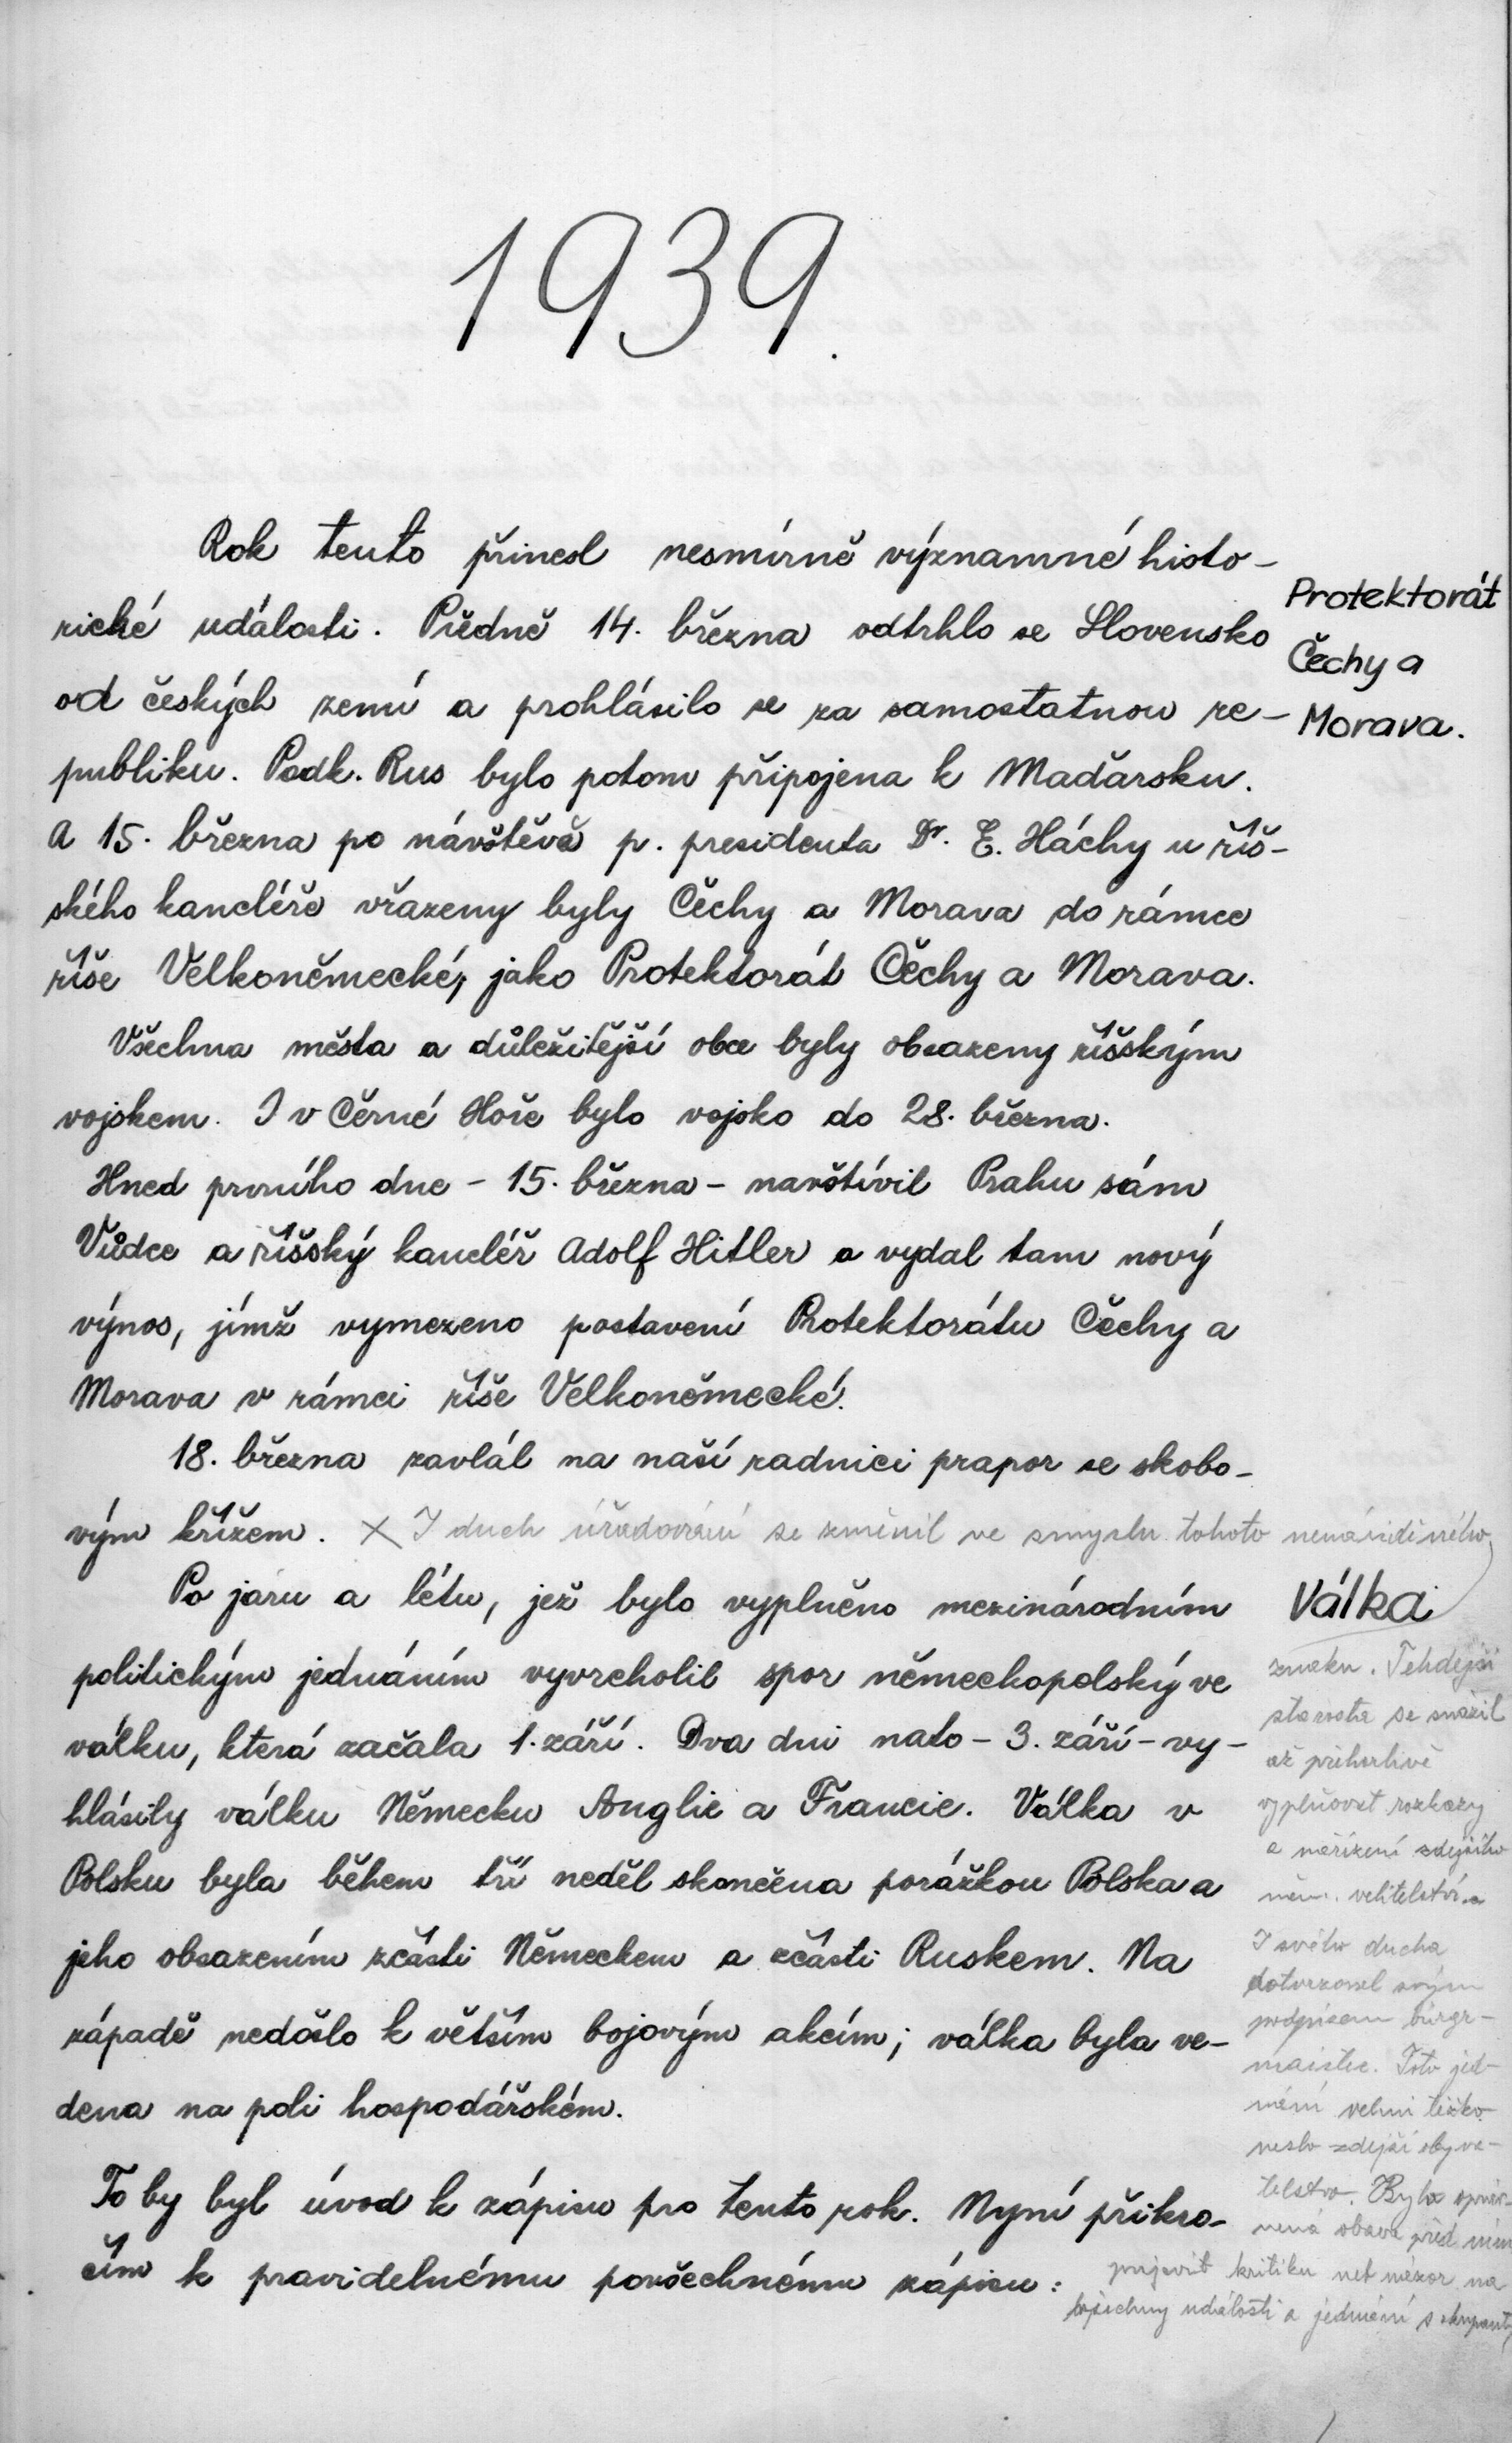 1939.
Rok tento přinesl nesmírně významné histo-
rické události. Předně 14. března odtrhlo se Slovensko
od českých zemí a prohlásilo se za samostatnou re-
publiku. Podk. Rus bylo potom připojena k Maďarsku.
A 15. března po návštěvě p. presidenta Dr. E. Háchy u říš-
ského kancléře vřazeny byly Čechy a Morava do rámce
říše Velkoněmecké, jako Protektorát Čechy a Morava.
Protektorát
Čechy a
Morava.
Všechna města a důležitější obce byly obsazeny říšským
vojskem. I v Černé Hoře bylo vojsko do 28. března.
Hned prvního dne - 15. března - navštívil Prahu sám
Vůdce a říšský kancléř Adolf Hitler a vydal tam nový
výnos, jímž vymezeno postavení Protektorátu Čechy a
Morava v rámci říše Velkoněmecké.
18. března zavlál na naší radnici prapor se skobo-
vým křížem. X I duch úřadování se změnil ve smyslu tohoto nenáviděného
Po jaru a létu, jež bylo vyplněno mezinárodním
politickým jednáním vyvrcholil spor německopolský ve
válku, která začala 1. září. Dva dni nato - 3. září - vy-
hlásily válku Německu Anglie a Francie. Válka v
Polsku byla během tří neděl skončena porážkou Polska a
jeho obsazením zčásti Německem a zčásti Ruskem. Na
západě nedošlo k větším bojovým akcím; válka byla ve-
dena na poli hospodářském.
To by byl úvod k zápisu pro tento rok. Nyní přikro-
čím k pravidelnému povšechnému zápisu:
Válka
znaku. Tehdejší
starosta se snažil
až přehorlivě
vyplňovat rozkazy
a nařízení zdejšího
něm. velitelství a
I svého ducha
dotvrzoval svým
podpisem bürgr-
maister. Toto jed-
nání velmi těžko
neslo zdejší obyva-
telstvo. Byla
obava před ním
projevit kritiku neb názor na
všechny události a jednání s okupanty